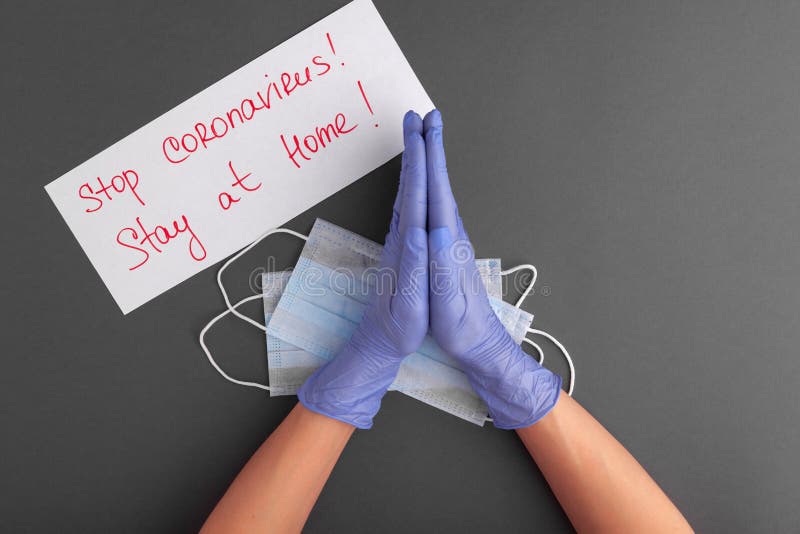 Stop CORONAVIRUS!
Stay at Home!
dreamstime